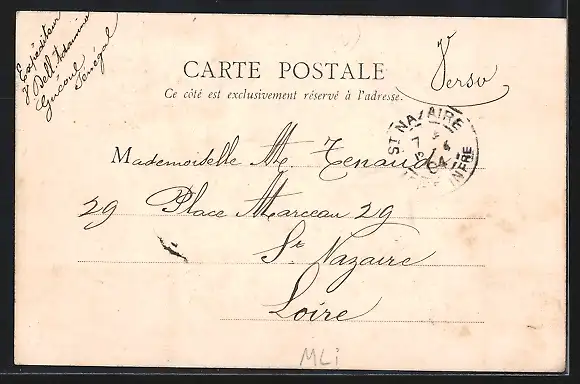 Expéditeur
Guéoul
Sénégal
Verso
CARTE POSTALE
Ce côté est exclusivement réservé à l'adresse.
ST NAZAIRE
7
04
INFRE
Mademoiselle M. Tenaud
29 Place Marceau 29
St Nazaire
Loire
MLi